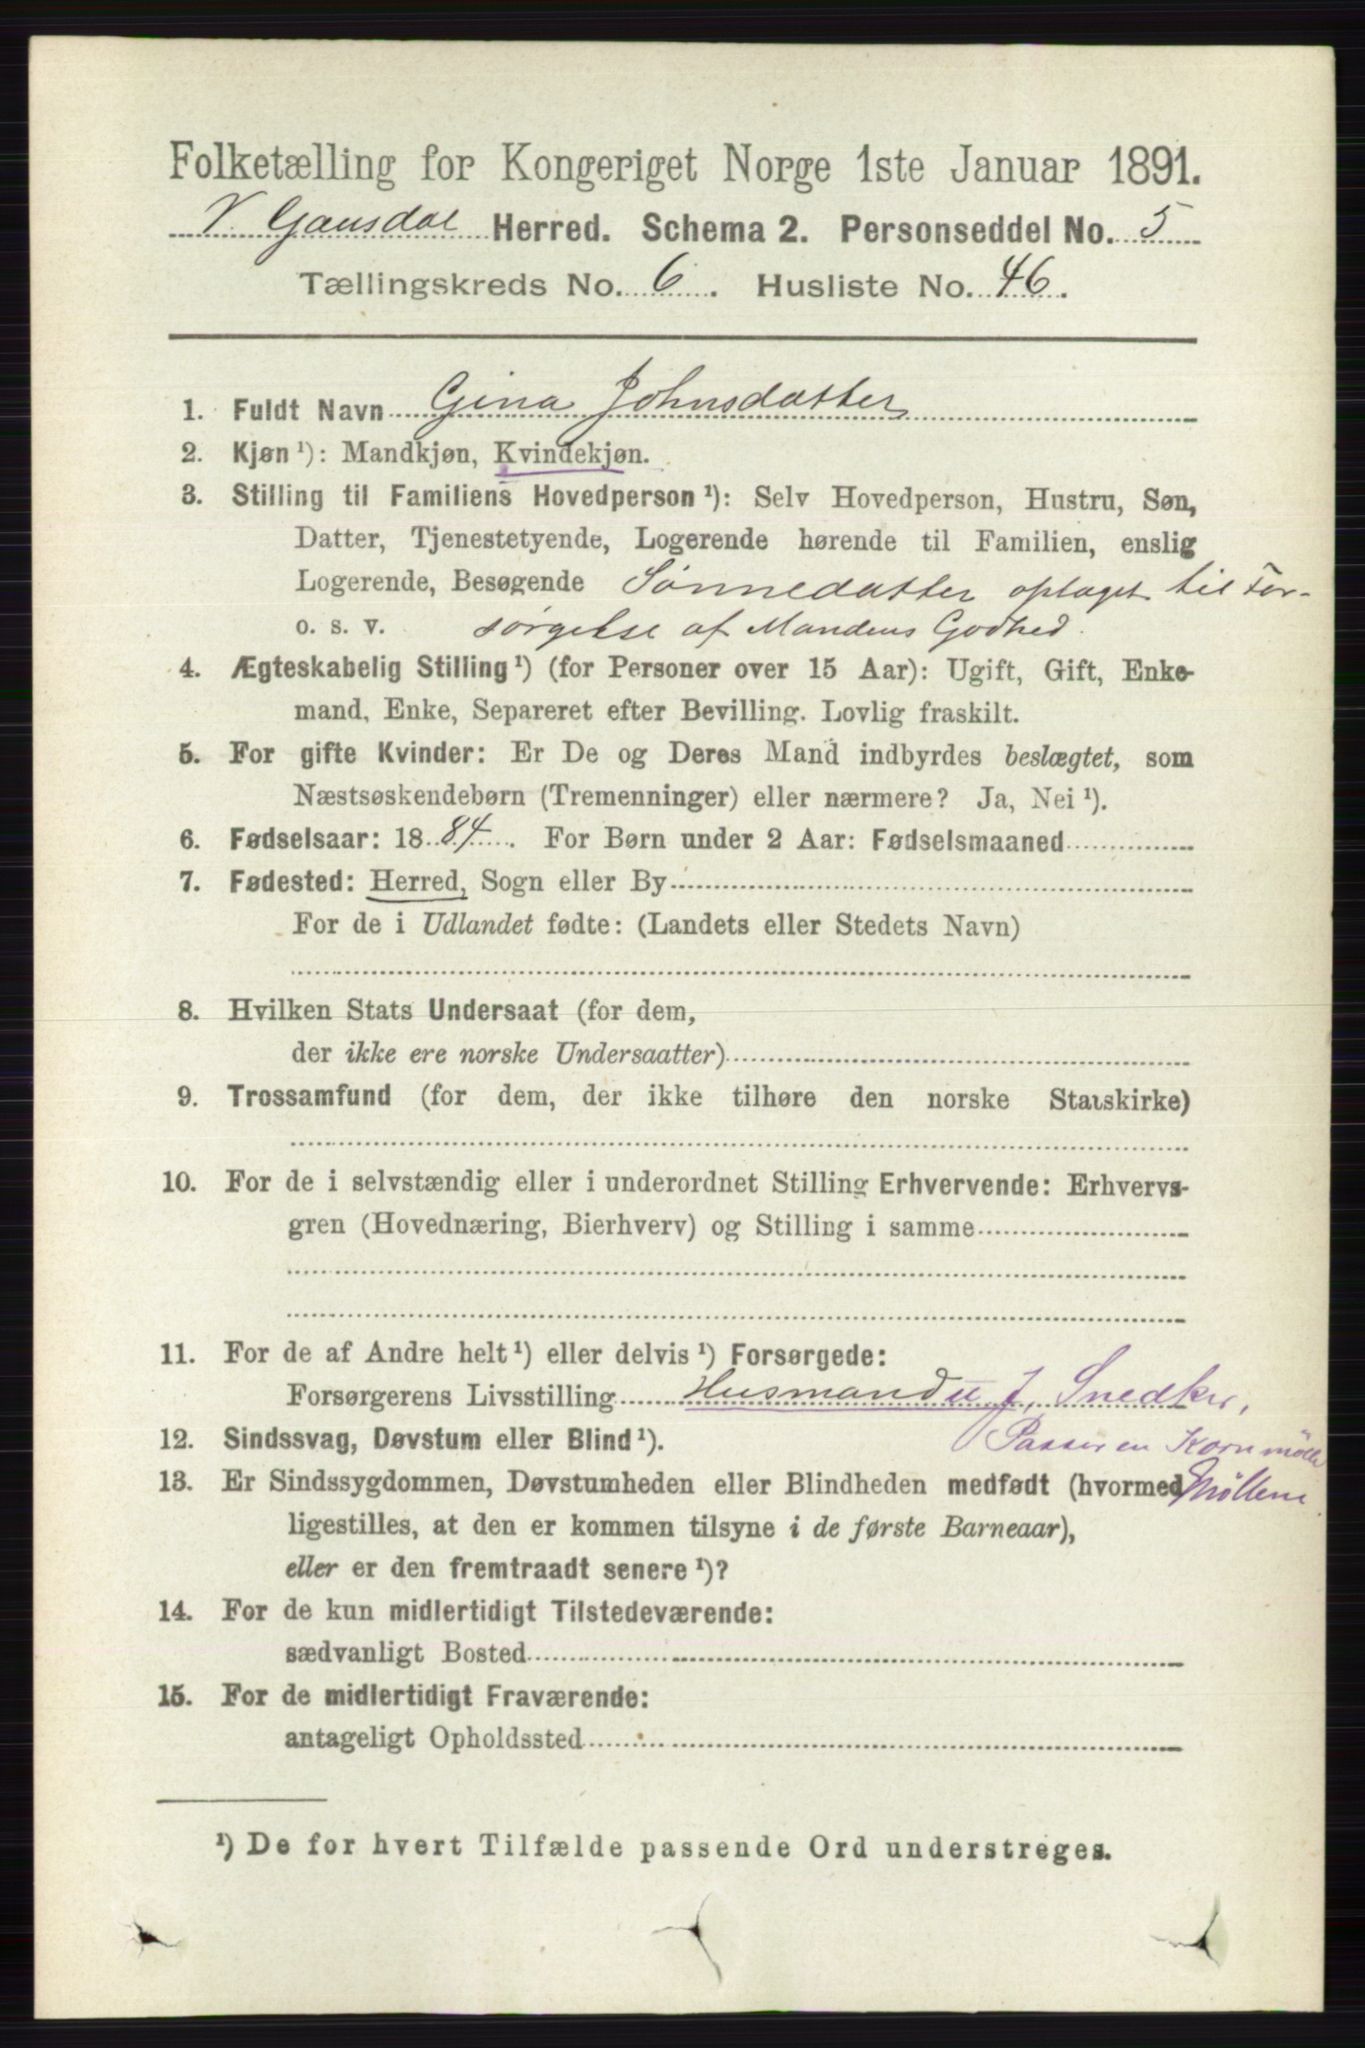 Folketælling for Kongeriget Norge 1ste Januar 1891.
V. Gausdal Herred. Schema 2. Personseddel No. 5
Tællingskreds No. 6. Husliste No. 46.
1. Fuldt Navn Gina Johnsdatter
2. Kjøn ¹): Mandkjøn, Kvindekjøn.
3. Stilling til Familiens Hovedperson ¹): Selv Hovedperson, Hustru, Søn,
Datter, Tjenestetyende, Logerende hørende til Familien, enslig
Logerende, Besøgende Sønnedatter optaget til For-
o. s. v. sørgelse af Mandens Godhed.
4. Ægteskabelig Stilling ¹) (for Personer over 15 Aar): Ugift, Gift, Enke-
mand, Enke, Separeret efter Bevilling. Lovlig fraskilt.
5. For gifte Kvinder: Er De og Deres Mand indbyrdes beslægtet, som
Næstsøskendebørn (Tremenninger) eller nærmere? Ja, Nei ¹).
6. Fødselsaar: 1884. For Børn under 2 Aar: Fødselsmaaned
7. Fødested: Herred, Sogn eller By
For de i Udlandet fødte: (Landets eller Stedets Navn)
8. Hvilken Stats Undersaat (for dem,
der ikke ere norske Undersaatter)
9. Trossamfund (for dem, der ikke tilhøre den norske Statskirke)
10. For de i selvstændig eller i underordnet Stilling Erhvervende: Erhvervs-
gren (Hovednæring, Bierhverv) og Stilling i samme
11. For de af Andre helt ¹) eller delvis ¹) Forsørgede:
Forsørgerens Livsstilling Husmand u J, Snedker,
12. Sindssvag, Døvstum eller Blind ¹). Passer en Kornmølle
13. Er Sindssygdommen, Døvstumheden eller Blindheden medfødt (hvormed
ligestilles, at den er kommen tilsyne i de første Barneaar),
eller er den fremtraadt senere ¹)?
14. For de kun midlertidigt Tilstedeværende:
sædvanligt Bosted
15. For de midlertidigt Fraværende:
antageligt Opholdssted
¹) De for hvert Tilfælde passende Ord understreges.